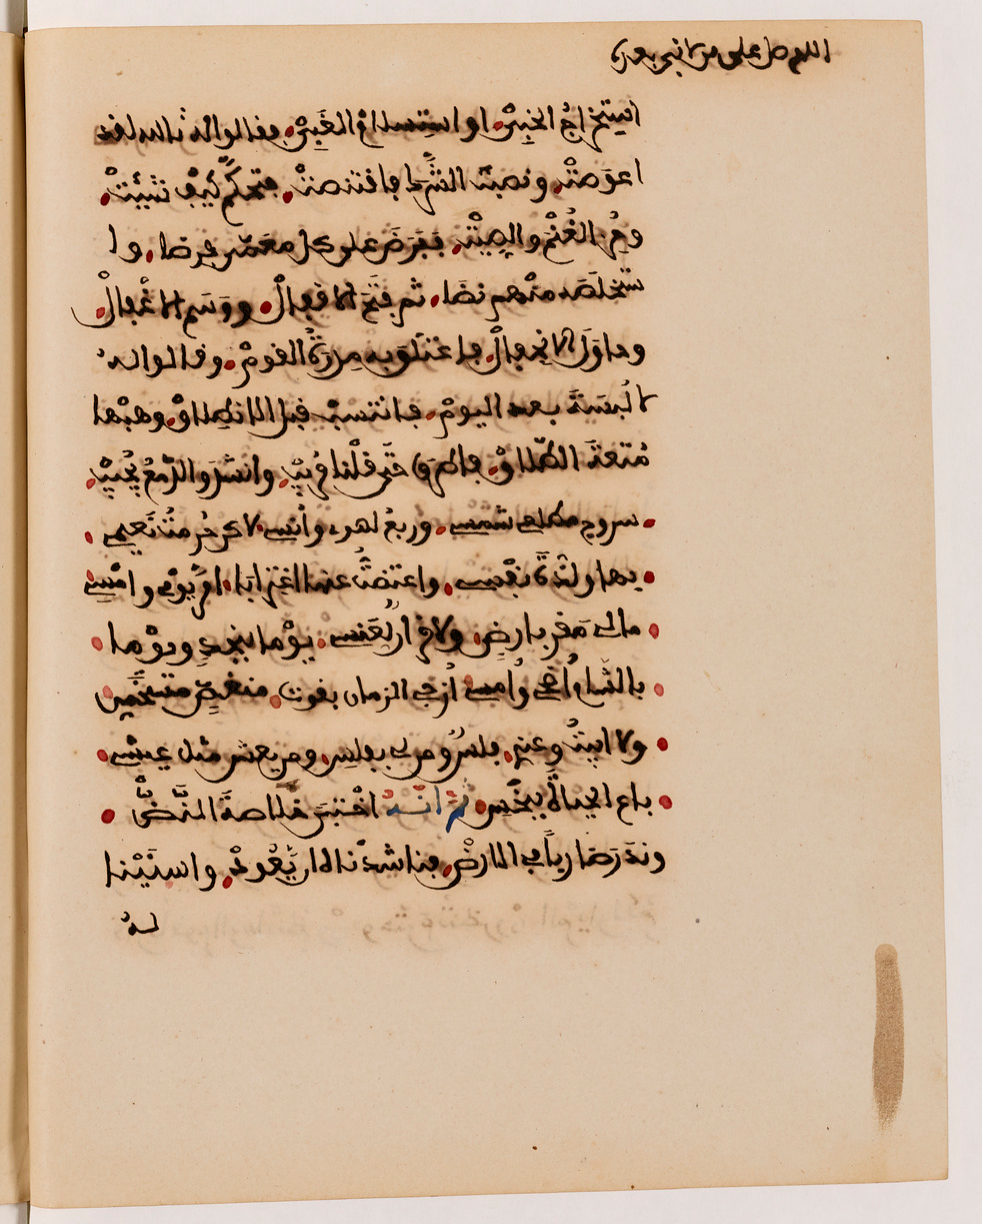 اللهم صل على من لا نبي بعده
استخراجُ الخبِيْ، او استسلامُ الغَبِيْ، فقالوا له تالله لقد
اعوَصْتَ، ونصبتَ الشَّرَكَ فاقتنصتْ، فتحكَّم كيف شِئْتْ،
وحُز الغُنْمَ والصِيْتْ، ففَرَضَ على كل معمّى فرضا، وا
ستخلصه منهم نضا، ثم فتَحَ الاقفالْ، ووَسَم الاغْفالْ
وحاوَلَ الانجفالْ، فاعتلق به مِدرَهُ القومْ، وقال له
لا لُبسَةَ بعد اليومْ، فانتسبْ قبل الانطلاقْ، وهبْها
مُتعةَ الطّلاقْ، فاطرق حتى قلنا مُريبْ، وانشدَ والدّمعُ يُجيبْ،
سروج مطلع شمسي، وربعُ لهوي وأنسي، لاكن حُرمتُ نَعيمي
بها ولذةَ نفسي، واعتضتُ عنها اغترابا، امرّ يومي وامْسي
مالي مَقر بارض، ولا قرار لِعَنسي، يوْما بنجدٍ ويوْما
بالشام اُضحي واُمسي، اُزجي الزمان بقوت، منغصٍ مستخَسّ
ولا ابيتُ وعندي، فلسٌ ومن لي بفلس، ومن يعش مثل عيشي
باع الحياةَ ببخْس، ثمّ انّهُ اخْتَبَنَ خلاصةَ النَّضّ
وندَرَ ضاربا في الارضْ، فناشدْناه ان يَّعُودْ، واسنَيْنا
لهُ